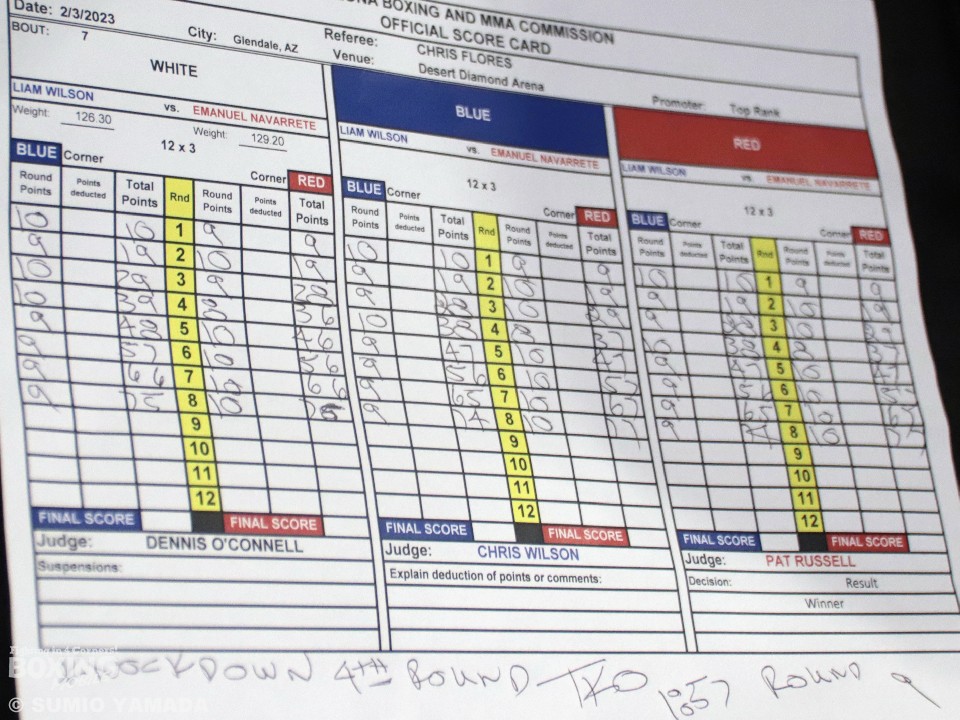 Date: 2/3/2023
BOXING AND MMA COMMISSION
OFFICIAL SCORE CARD
BOUT: 7 City: Glendale, AZ Referee: CHRIS FLORES
Venue: Desert Diamond Arena
Promoter: Top Rank
WHITE
LIAM WILSON vs. EMANUEL NAVARRETE
Weight: 126.30 Weight: 129.20
12 x 3
BLUE Corner Corner RED
Round Points Points deducted Total Points Rnd Round Points Points deducted Total Points
10 10 1 9 9
9 19 2 10 19
10 29 3 9 28
10 39 4 8 36
9 48 5 10 46
9 57 6 10 56
9 66 7 10 66
9 75 8 10 76
9
10
11
12
FINAL SCORE FINAL SCORE
Judge: DENNIS O'CONNELL
Suspensions:
BLUE
LIAM WILSON vs. EMANUEL NAVARRETE
12 x 3
BLUE Corner Corner RED
Round Points Points deducted Total Points Rnd Round Points Points deducted Total Points
10 10 1 9 9
9 19 2 10 19
9 28 3 10 29
10 38 4 8 37
9 47 5 10 47
9 56 6 10 57
9 65 7 10 67
9 74 8 10 77
9
10
11
12
FINAL SCORE FINAL SCORE
Judge: CHRIS WILSON
Explain deduction of points or comments:
RED
LIAM WILSON vs. EMANUEL NAVARRETE
12 x 3
BLUE Corner Corner RED
Round Points Points deducted Total Points Rnd Round Points Points deducted Total Points
10 10 1 9 9
9 19 2 10 19
9 28 3 10 29
10 38 4 8 37
9 47 5 10 47
9 56 6 10 57
9 65 7 10 67
9 74 8 10 77
9
10
11
12
FINAL SCORE FINAL SCORE
Judge: PAT RUSSELL
Decision: Result
Winner
KNOCKDOWN 4TH ROUND TKO ROUND 9
BOXING
© SUMIO YAMADA